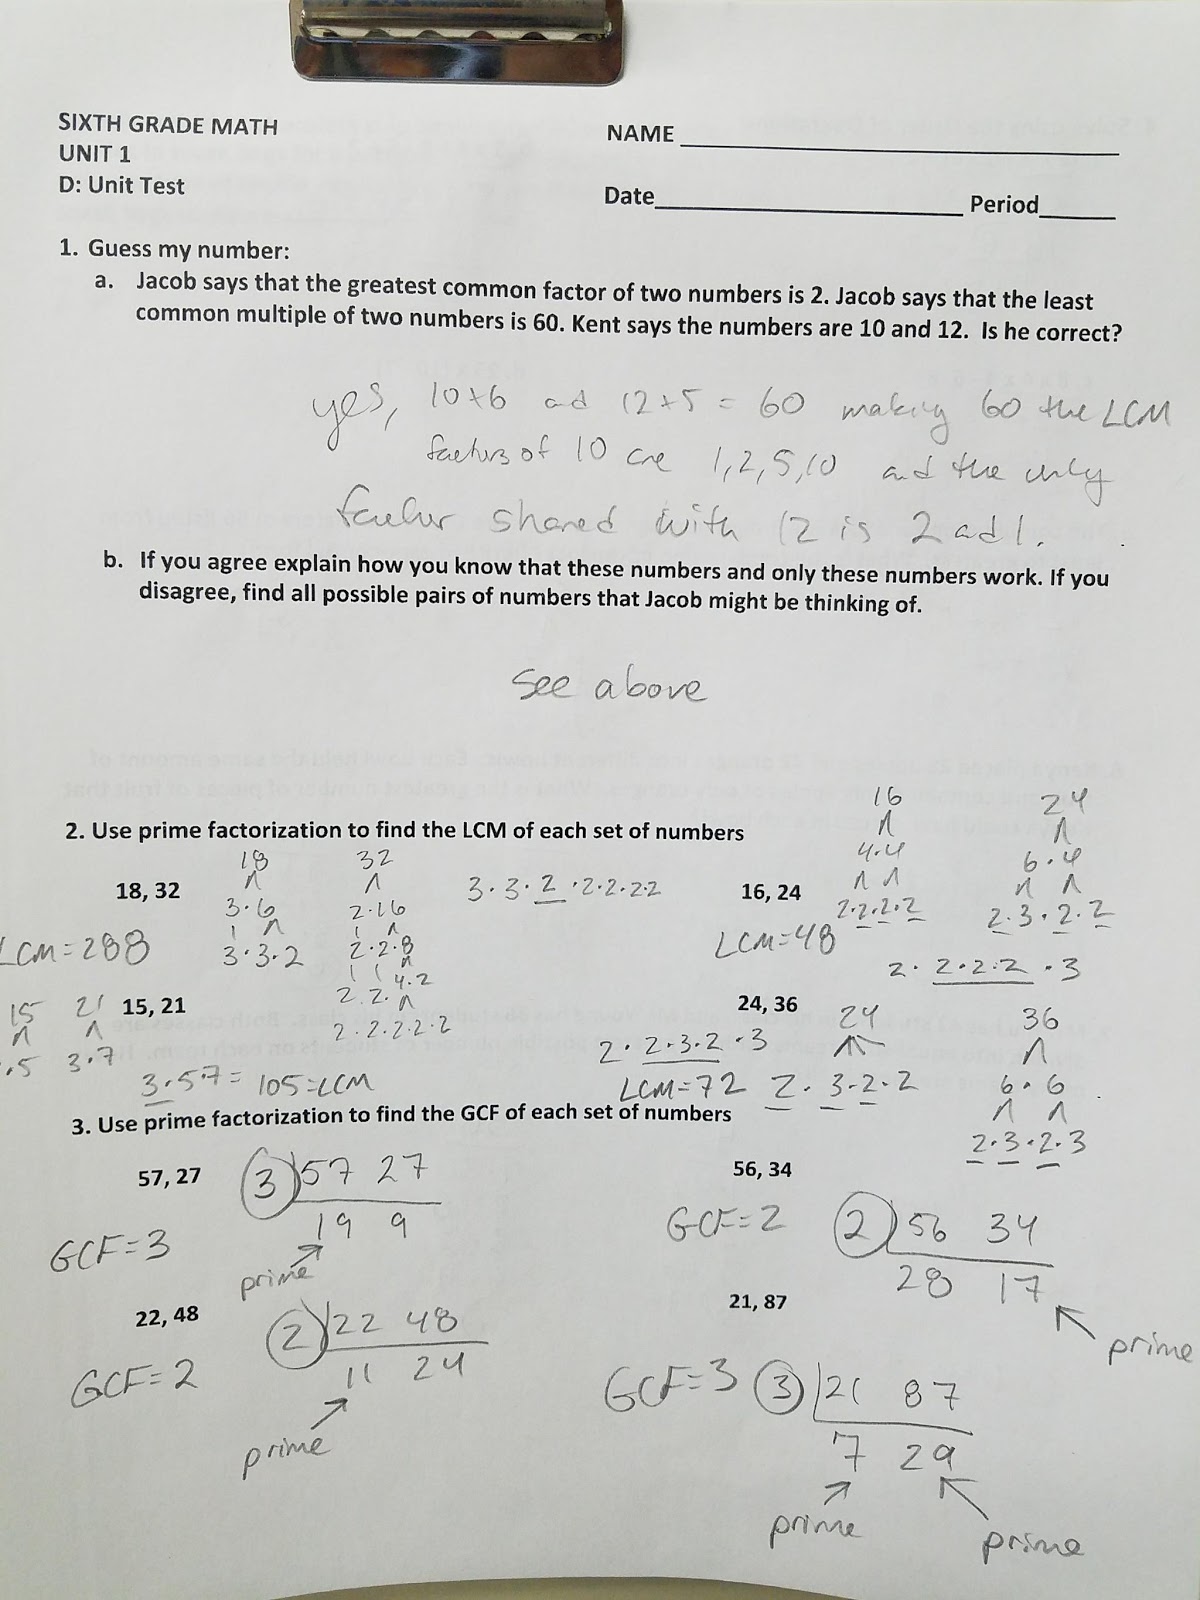 SIXTH GRADE MATH
UNIT 1
D: Unit Test
NAME
Date Period
1. Guess my number:
a. Jacob says that the greatest common factor of two numbers is 2. Jacob says that the least
common multiple of two numbers is 60. Kent says the numbers are 10 and 12. Is he correct?
yes, 10×6 and 12×5 = 60 making 60 the LCM
factors of 10 are 1,2,5,10 and the only
factor shared with 12 is 2 and 1.
b. If you agree explain how you know that these numbers and only these numbers work. If you
disagree, find all possible pairs of numbers that Jacob might be thinking of.
see above
2. Use prime factorization to find the LCM of each set of numbers
18, 32
18
3·6
3·3·2
32
2·16
2·2·8
4·2
2·2·
2·2·2·2·2
3·3·2·2·2·2·2
LCM=288
16, 24
16
4·4
2·2·2·2
24
6·4
2·3·2·2
LCM=48
2·2·2·2·3
15, 21
15
·5
21
3·7
3·5·7= 105=LCM
24, 36
24
2·3·2·2
36
6·6
2·3·2·3
2·2·3·2·3
LCM=72
3. Use prime factorization to find the GCF of each set of numbers
57, 27
3 57 27
19 9
prime
GCF=3
56, 34
GCF=2
2 56 34
28 17
prime
22, 48
2 22 48
11 24
prime
GCF=2
21, 87
GCF=3
3 21 87
7 29
prime
prime